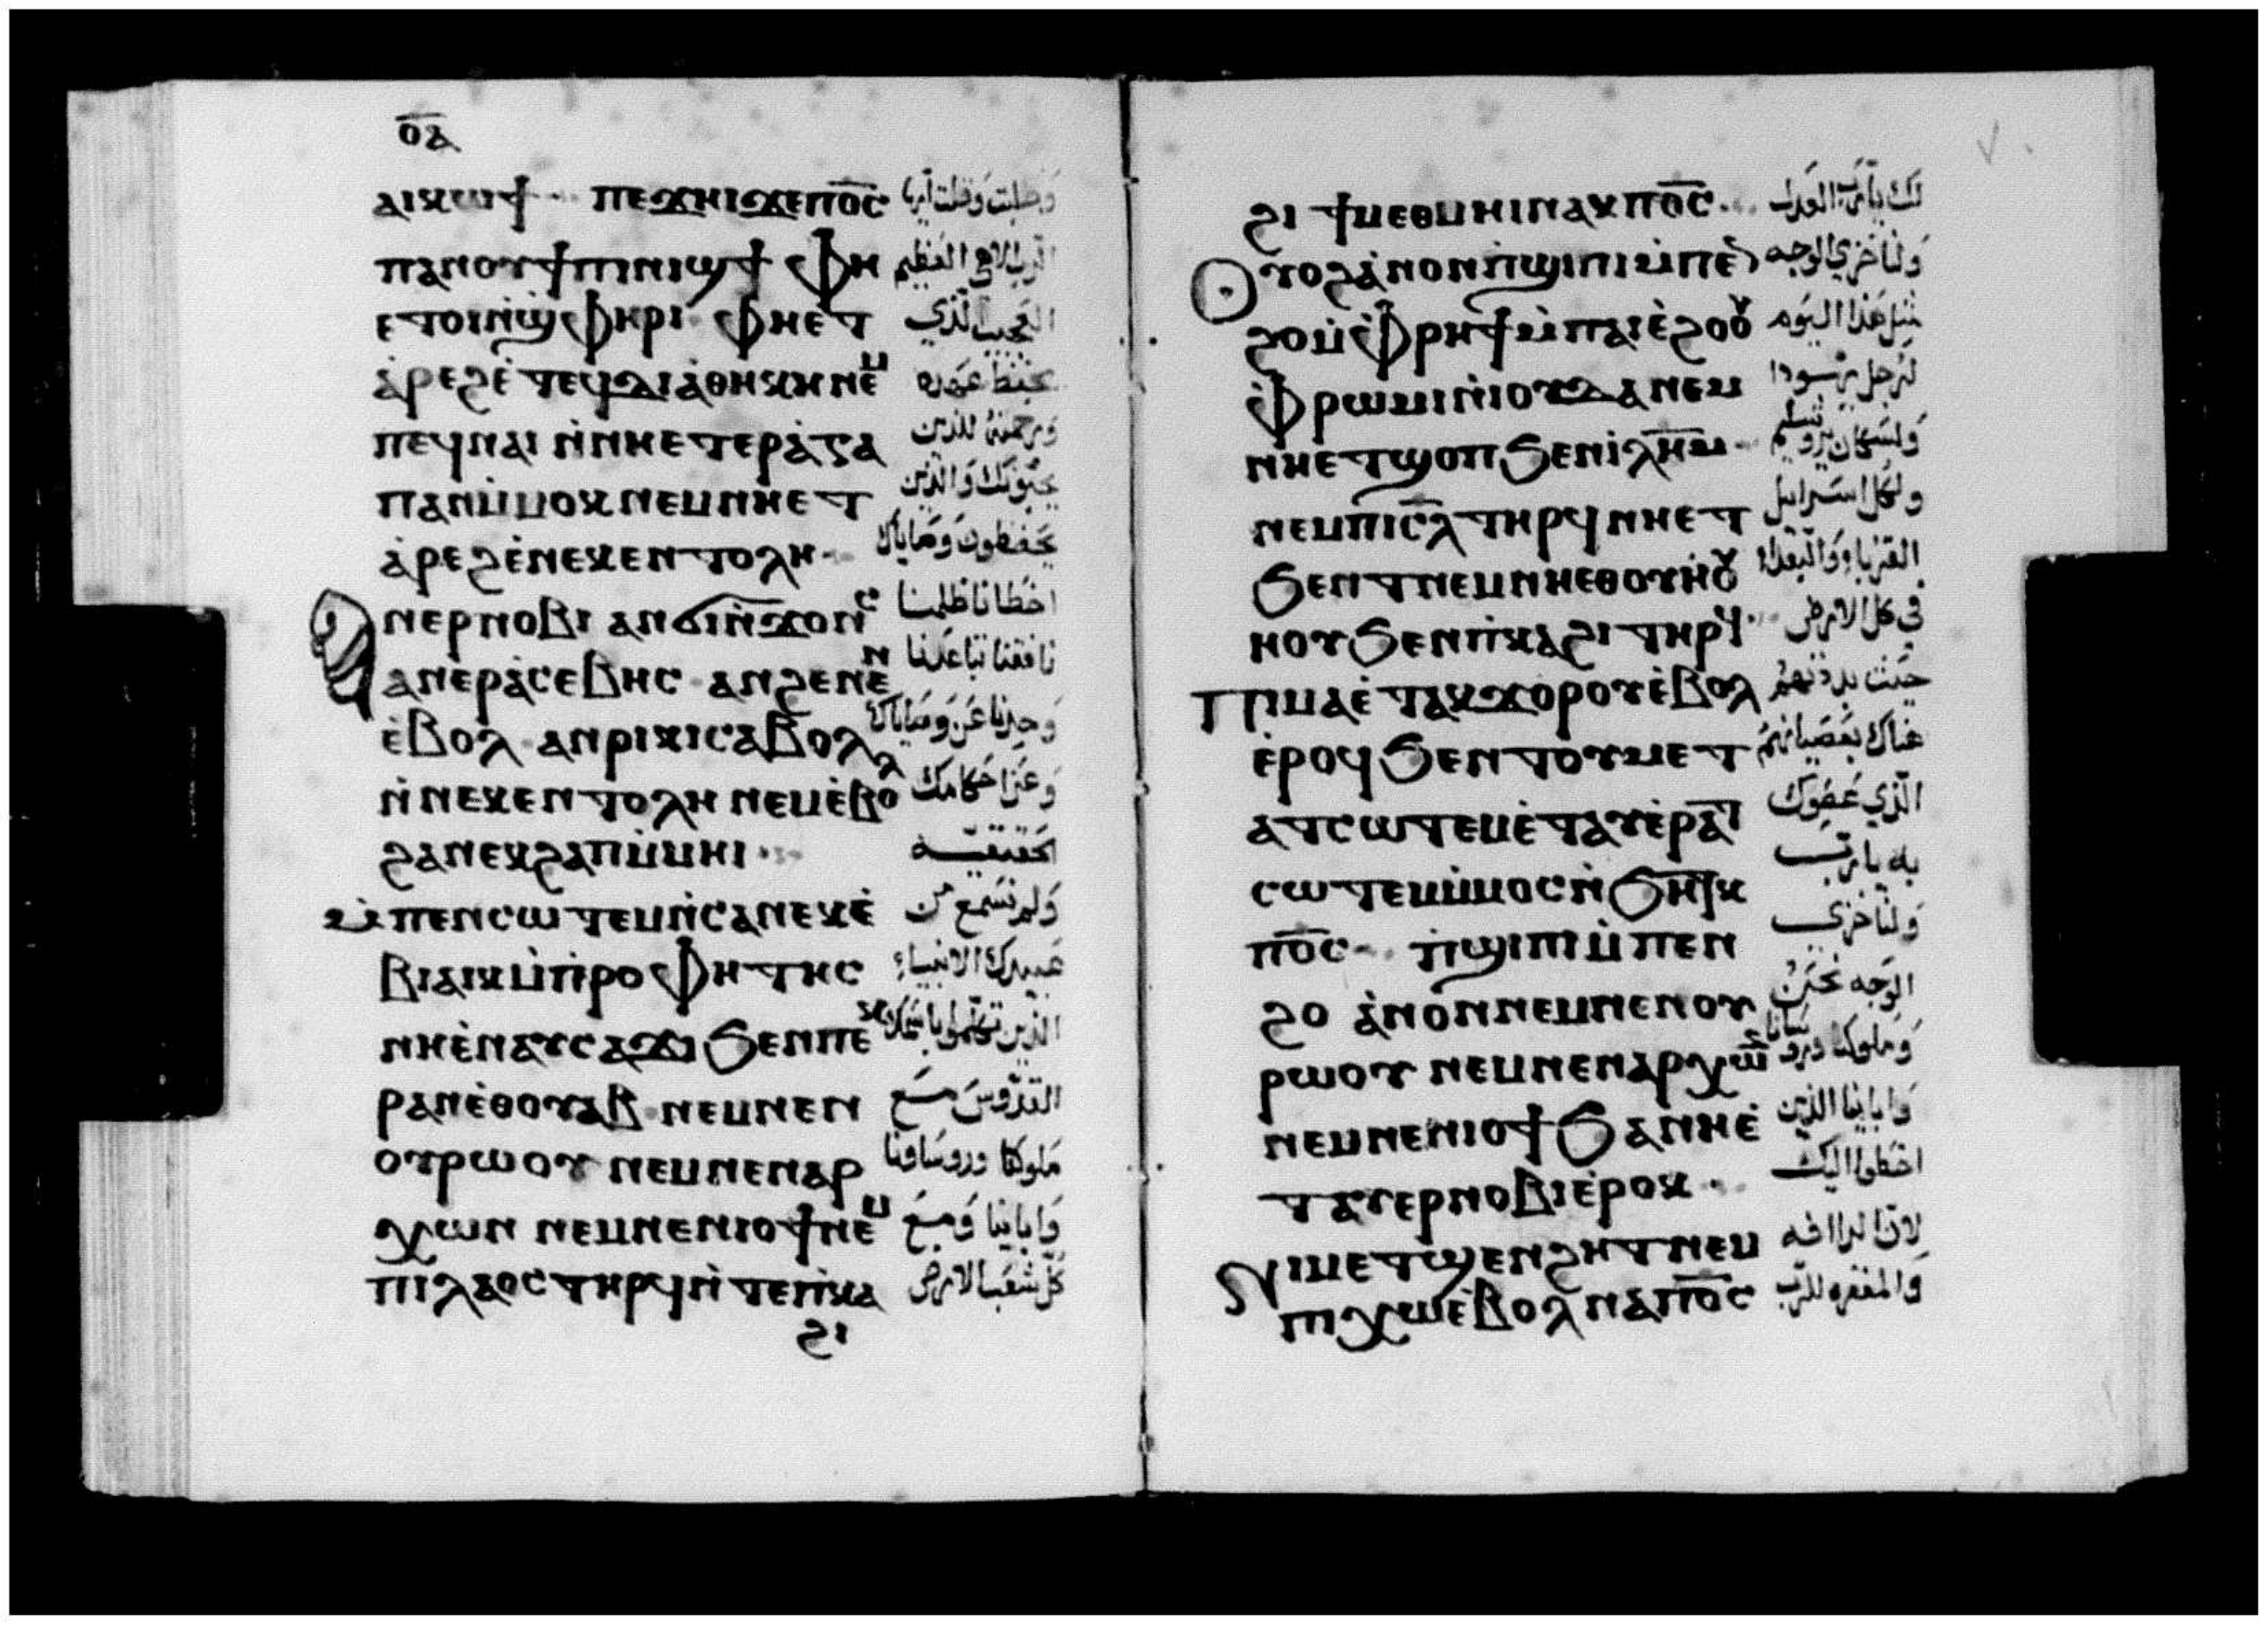 ⲟⲁ
ⲁⲓⲭⲱϯ ⲡⲉϫⲏⲓϫⲉⲡⲟ̅ⲥ̅
ⲡⲁⲛⲟⲩϯⲡⲓⲛⲓϣϯ ⲫⲏ الرب الاهي العظيم
ⲉⲧⲟⲓⲛ̀ϣⲫⲏⲣⲓ ⲫⲏⲉⲧ العجيب الذي
ⲁ̀ⲣⲉϩⲉ̀ ⲧⲉϥⲇⲓⲁ̀ⲑⲏⲕⲏ ⲛⲉⲙ يحفظ عهده
ⲡⲉϥⲛⲁⲓ ⲛ̀ⲛⲏⲉⲧⲉⲣⲁ̀ⲅⲁ ورحمته للذين
ⲡⲁⲛⲙ̀ⲙⲟⲕ ⲛⲉⲙⲛⲏⲉⲧ يحبونك والذين
ⲁ̀ⲣⲉϩⲉ̀ⲛⲉⲕⲉⲛⲧⲟⲗⲏ يحفظون وصاياك
ⲁⲛⲉⲣⲛⲟⲃⲓ ⲁⲛϭⲓⲛ̀ϫⲟⲛⲥ اخطانا ظلمنا
ⲁⲛⲉⲣⲁ̀ⲥⲉⲃⲏⲥ ⲁⲛϩⲉⲛⲉⲛ نافقنا تباعدنا
ⲉ̀ⲃⲟⲗ ⲁⲛⲣⲓⲕⲓⲥⲁⲃⲟⲗ وحدنا عن وصاياك
ⲛ̀ⲛⲉⲕⲉⲛⲧⲟⲗⲏ ⲛⲉⲙⲉ̀ⲃⲟⲗ وعن احكامك
ϩⲁⲛⲉⲕϩⲁⲡⲙ̀ⲙⲏⲓ الحقيقيه
ⲙ̀ⲡⲉⲛⲥⲱⲧⲉⲙⲛ̀ⲥⲁⲛⲉⲕⲉ̀ ولم نسمع من
ⲃⲓⲁⲓⲕⲙ̀ⲡⲣⲟⲫⲏⲧⲏⲥ عبيدك الانبياء
ⲛⲏⲉ̀ⲛⲁⲩⲥⲁϫⲓ ϧⲉⲛⲡⲉⲕ الذين تكلموا باسمك
ⲣⲁⲛⲉ̀ⲑⲟⲩⲁⲃ ⲛⲉⲙⲛⲉⲛ القدوس مع
ⲟⲩⲣⲱⲟⲩ ⲛⲉⲙⲛⲉⲛⲁⲣ ملوكنا وروسانا
ⲭⲱⲛ ⲛⲉⲙⲛⲉⲛⲓⲟϯ ⲛⲉⲙ وابائنا ومع
ⲡⲓⲗⲁⲟⲥ ⲧⲏⲣϥⲛ̀ⲧⲉⲡ̀ⲕⲁ كل شعب الارض
ϩⲓ
ϩⲓ ϯⲙⲉⲑⲙⲏⲓⲛⲁⲕⲡⲟ̅ⲥ̅ لك يا رب العدل
ⲟⲩⲟϩⲁ̀ⲛⲟⲛⲡ̀ϣⲓⲡⲓⲙ̀ⲡⲉⲛ ولنا خزي الوجه
ϩⲟⲙ̀ⲫⲣⲏϯⲙ̀ⲡⲁⲓⲉ̀ϩⲟⲟⲩ مثل هذا اليوم
ⲙ̀ⲫⲣⲱⲙⲓⲛ̀ⲓⲟⲩⲇⲁ ⲛⲉⲙ لرجل يهودا
ⲛⲏⲉⲧϣⲟⲡ ϧⲉⲛⲓ̀ⲗ̅ⲏ̅ⲙ̅ ولسكان يروشليم
ⲛⲉⲙⲡⲓⲥ̅ⲗ̅ ⲧⲏⲣϥ ⲛⲏⲉⲧ ولكل اسراييل
ϧⲉⲛⲧ ⲛⲉⲙⲛⲏⲉⲑⲟⲩⲏⲟⲩ القرباء والبعداء
ⲏⲟⲩ ϧⲉⲛⲡ̀ⲕⲁϩⲓ ⲧⲏⲣϥ في كل الارض
ⲡⲓⲙⲁⲉ̀ⲧⲁⲕϫⲟⲣⲟⲩⲉ̀ⲃⲟⲗ حيث بددتهم
ⲉ̀ⲣⲟϥ ϧⲉⲛⲧⲟⲩⲙⲉⲧ هناك بعصيانهم
ⲁⲧⲥⲱⲧⲉⲙⲉ̀ⲧⲁⲩⲉ̀ⲣⲁⲧ الذي عصوك
ⲥⲱⲧⲉⲙⲙ̀ⲙⲟⲥⲛ̀ϧⲏⲧⲕ به يا رب
ⲡⲟ̅ⲥ̅ ⲡ̀ϣⲓⲡⲓⲙ̀ⲡⲉⲛ ولنا خزي
ϩⲟ ⲁ̀ⲛⲟⲛ ⲛⲉⲙⲛⲉⲛⲟⲩ الوجه نحن
ⲣⲱⲟⲩ ⲛⲉⲙⲛⲉⲛⲁⲣⲭⲱⲛ وملوكنا وروسانا
ⲛⲉⲙⲛⲉⲛⲓⲟϯ ϧⲁⲛⲏⲉ̀ وابائنا الذين
ⲧⲁⲩⲉⲣⲛⲟⲃⲓⲉ̀ⲣⲟⲕ اخطوا اليك
ϫⲓⲙⲉⲧϣⲉⲛϩⲏⲧ ⲛⲉⲙ لان الرافه
ⲡⲓⲭⲱⲉ̀ⲃⲟⲗ ⲛⲁⲡⲟ̅ⲥ̅ والمغفره للرب